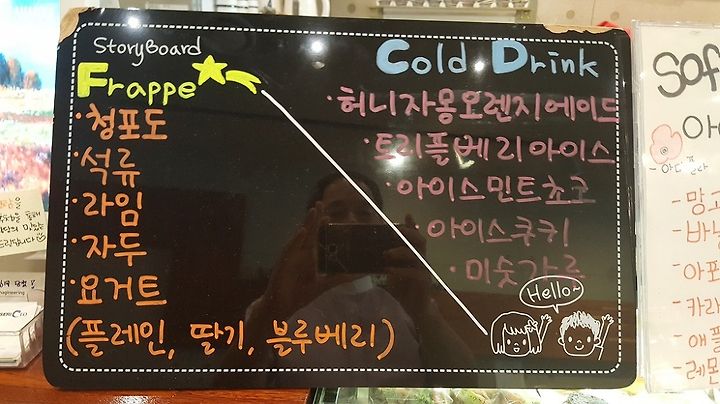 StoryBoard
Frappe
·청포도
·석류
·라임
·자두
·요거트
(플레인, 딸기, 블루베리)
Cold Drink
·허니자몽오렌지에이드
·토리플베리아이스
·아이스민트초코
·아이스쿠키
·미숫가루
Hello~
Sof
- 망고
- 바
- 아포
- 카리
- 애플
- 레몬